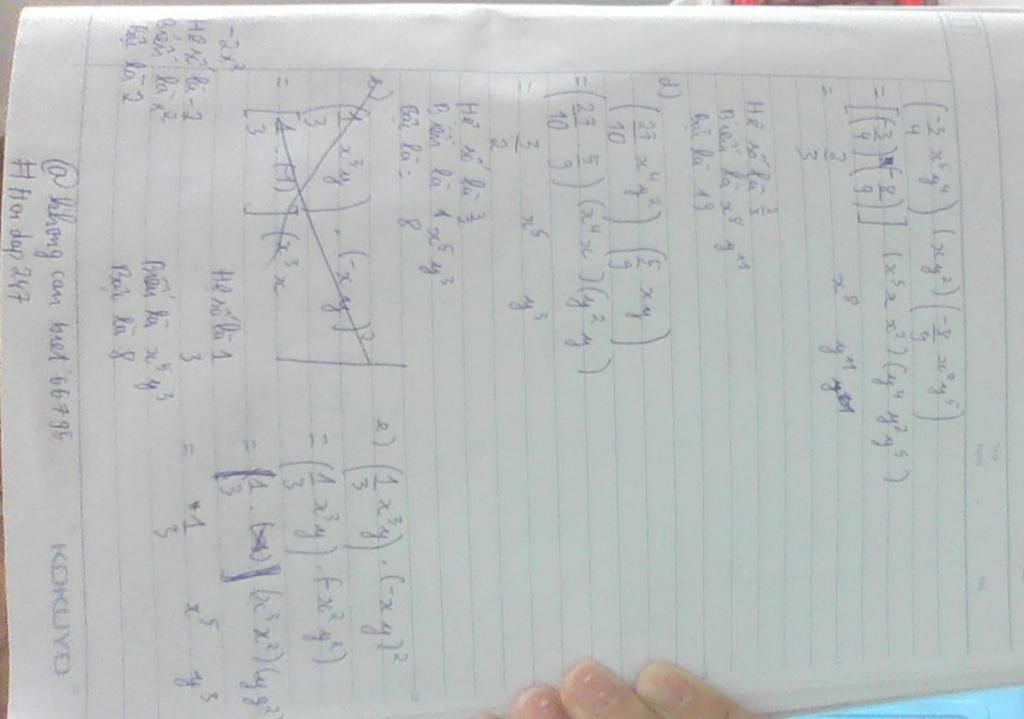 (-3/4 x⁵y⁴) (xy²) (-8/9 x²y⁵)
= [(-3/4) (-8/9)] (x⁵ x x²) (y⁴ y² y⁵)
= 2/3 x⁸ y¹¹
Hệ số là 2/3
Biến là x⁸ y¹¹
Bậc là 19
d)
(27/10 x⁴y²) (5/9 xy)
= (27/10 . 5/9) (x⁴ x) (y² y)
= 3/2 x⁵ y³
Hệ số là 3/2
Biến là x⁵ y³
Bậc là: 8
e) (1/3 x³y) . (-xy)²
= [1/3 . (-1)] (x³ x
e) (1/3 x³y) . (-xy)²
= (1/3 x³y) . (-x² y²)
= (1/3 . ) (x³ x²) (y y²
= 1/3 x⁵ y³
Hệ số là 1/3
Biến là x⁵ y³
Bậc là 8
-2x²
Hệ số là -2
Biến là x²
Bậc là 2
@ khong can biet 66795
# Hoi dap 247
KOKUYO